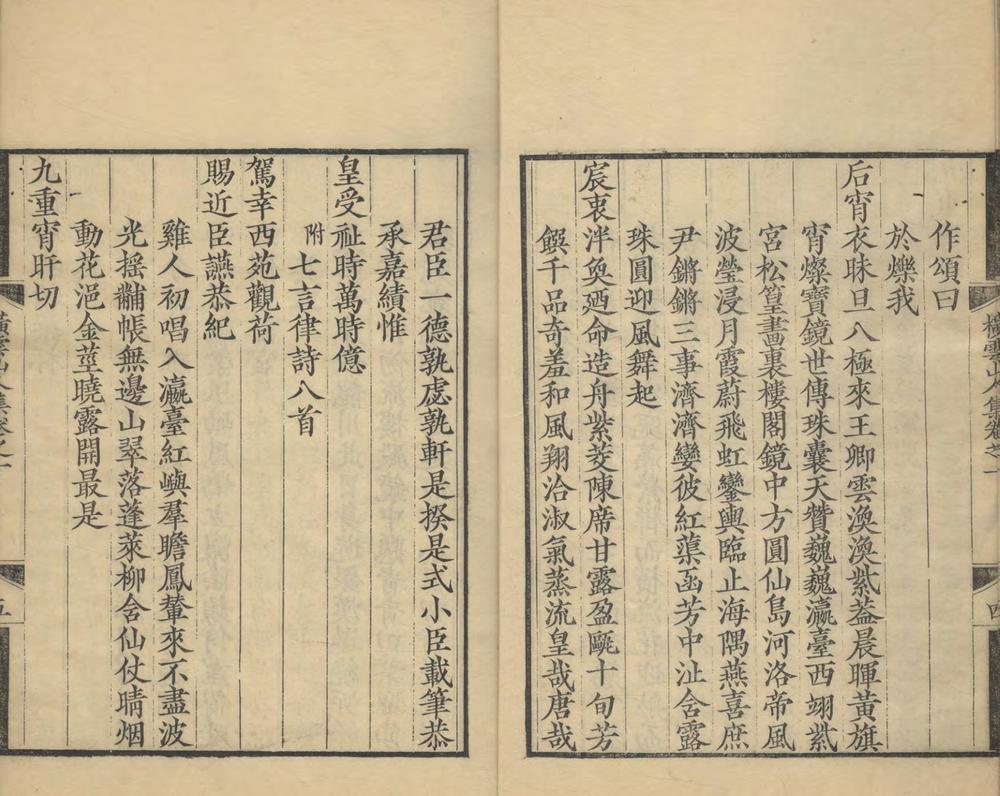 作頌曰
於爍我
后宵衣昧旦八極來王卿雲渙渙紫葢晨暉黃旗
宵燦寶鏡世傳珠囊天贊巍巍瀛臺西翊紫
宮松篁畫裏樓閣鏡中方圓仙島河洛帝風
波瑩浸月霞蔚飛虹鑾輿臨止海隅燕喜庶
尹鏘鏘三事濟濟孌彼紅蕖菡芳中沚含露
珠圓迎風舞起
宸衷泮奐廼命造舟紫茭陳席甘露盈甌十旬芳
饌千品奇羞和風翔洽淑氣蒸流皇哉唐哉
君臣一德孰虙孰軒是揆是式小臣載筆恭
承嘉績惟
皇受祉時萬時億
附七言律詩八首
駕幸西苑觀荷
賜近臣讌恭紀
雞人初唱入瀛臺紅嶼羣瞻鳳輦來不盡波
光摇黼帳無邊山翠落蓬萊柳含仙仗晴烟
動花浥金莖曉露開最是
九重宵旰切
雲山人集卷之一
四
五